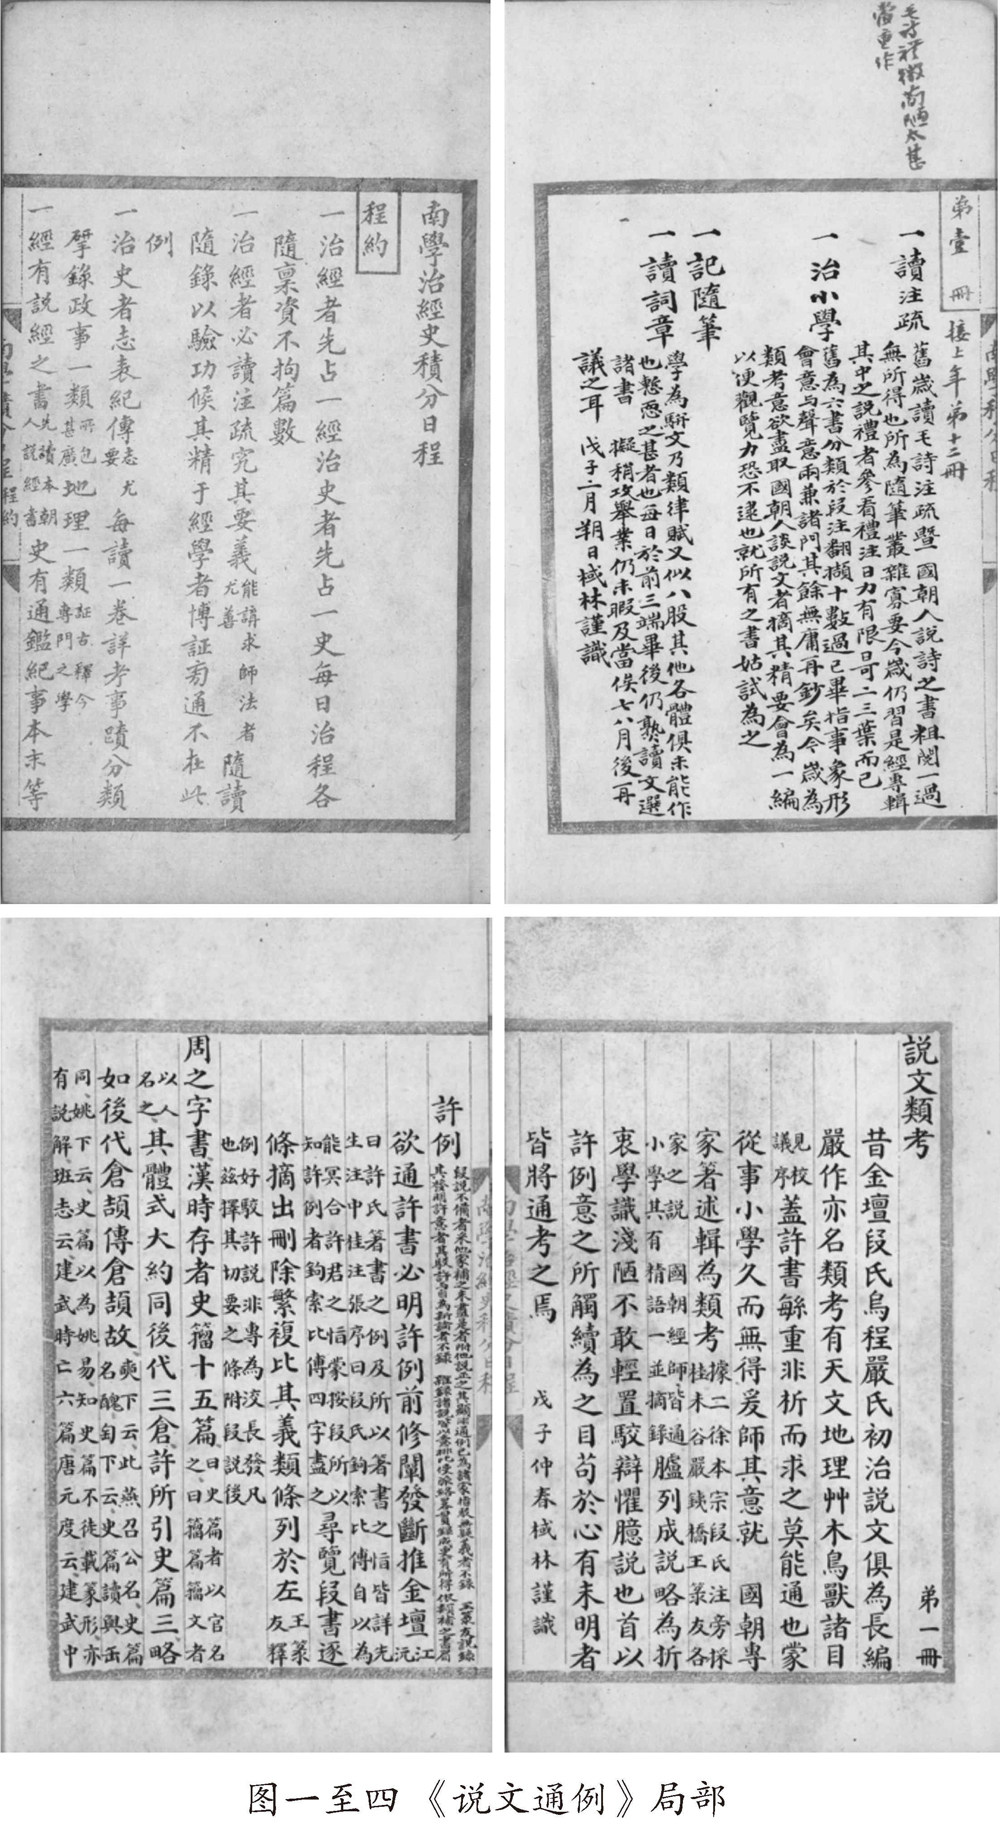 南學治經史積分日程
程約
一治經者先占一經治史者先占一史每日治程各
隨稟資不拘篇數
一治經者必讀注疏究其要義能講求師法者尤善隨讀
隨錄以驗功候其精于經學者博証旁通不在此
例
一治史者志表紀傳志尤要每讀一卷詳考事蹟分類
擘錄政事一類所包甚廣地理一類証古釋今專門之學
一經有說經之書先讀本朝人說經書史有通鑑紀事本末等
毛詩禮徵尚陋太甚
當重作
第壹冊
接上年第十二冊
一讀注疏
舊歲讀毛詩注疏暨國朝人說詩之書粗閱一過
無所得也所為隨筆叢雜寡要今歲仍習是經專輯
其中之說禮者參看禮注日力有限日可二三葉而已
一治小學
舊為六書分類於段注翻擷十數過已畢指事象形
會意与聲意兩兼諸門其餘無庸再鈔矣今歲為
類考意欲盡取國朝人談說文者摘其精要會為一編
以便觀覽力恐不逮也就所有之書姑試為之
一記隨筆
一讀詞章
學為駢文乃類律賦又似八股其他各體俱未能作
也慙恧之甚者也每日於前三端畢後仍熟讀文選
諸書 擬稍攻舉業仍未暇及當俟七八月後再
議之耳 戊子二月朔日棫林謹識
許例
欲通許書必明許例前修闡發斷推金壇
曰許氏著書之例及所以著書之恉皆詳先
生注中桂注張序曰段氏鉤索比傅自以為
能冥合許君之恉蒙按段所以
知許例者鉤索比傅四字盡之尋覽段書逐
條摘出刪除繁複比其義類條列於左王菉友釋
例好駮許說非專為洨長發凡
也茲擇其切要之條附段說後
周之字書漢時存者史籀十五篇
其體式大約同後代三倉許所引史篇三略
如後代倉頡傳倉頡故
同姚下云史篇以為姚易知史篇不徒載篆形亦
有說解班志云建武時亡六篇唐元度云建武中
說文類考
第一冊
昔金壇段氏烏程嚴氏初治說文俱為長編
嚴作亦名類考有天文地理艸木鳥獸諸目
見校議序蓋許書緐重非析而求之莫能通也蒙
從事小學久而無得爰師其意就 國朝專
家著述輯為類考據二徐本宗段氏注旁採桂未谷嚴鐵橋王菉友各
家之說 國朝經師皆通小學其有精語一並摘錄臚列成說略為折
衷學識淺陋不敢輕置駮辯懼臆說也首以
許例意之所觸續為之目苟於心有未明者
皆將通考之焉 戊子仲春棫林謹識
图一至四《说文通例》局部